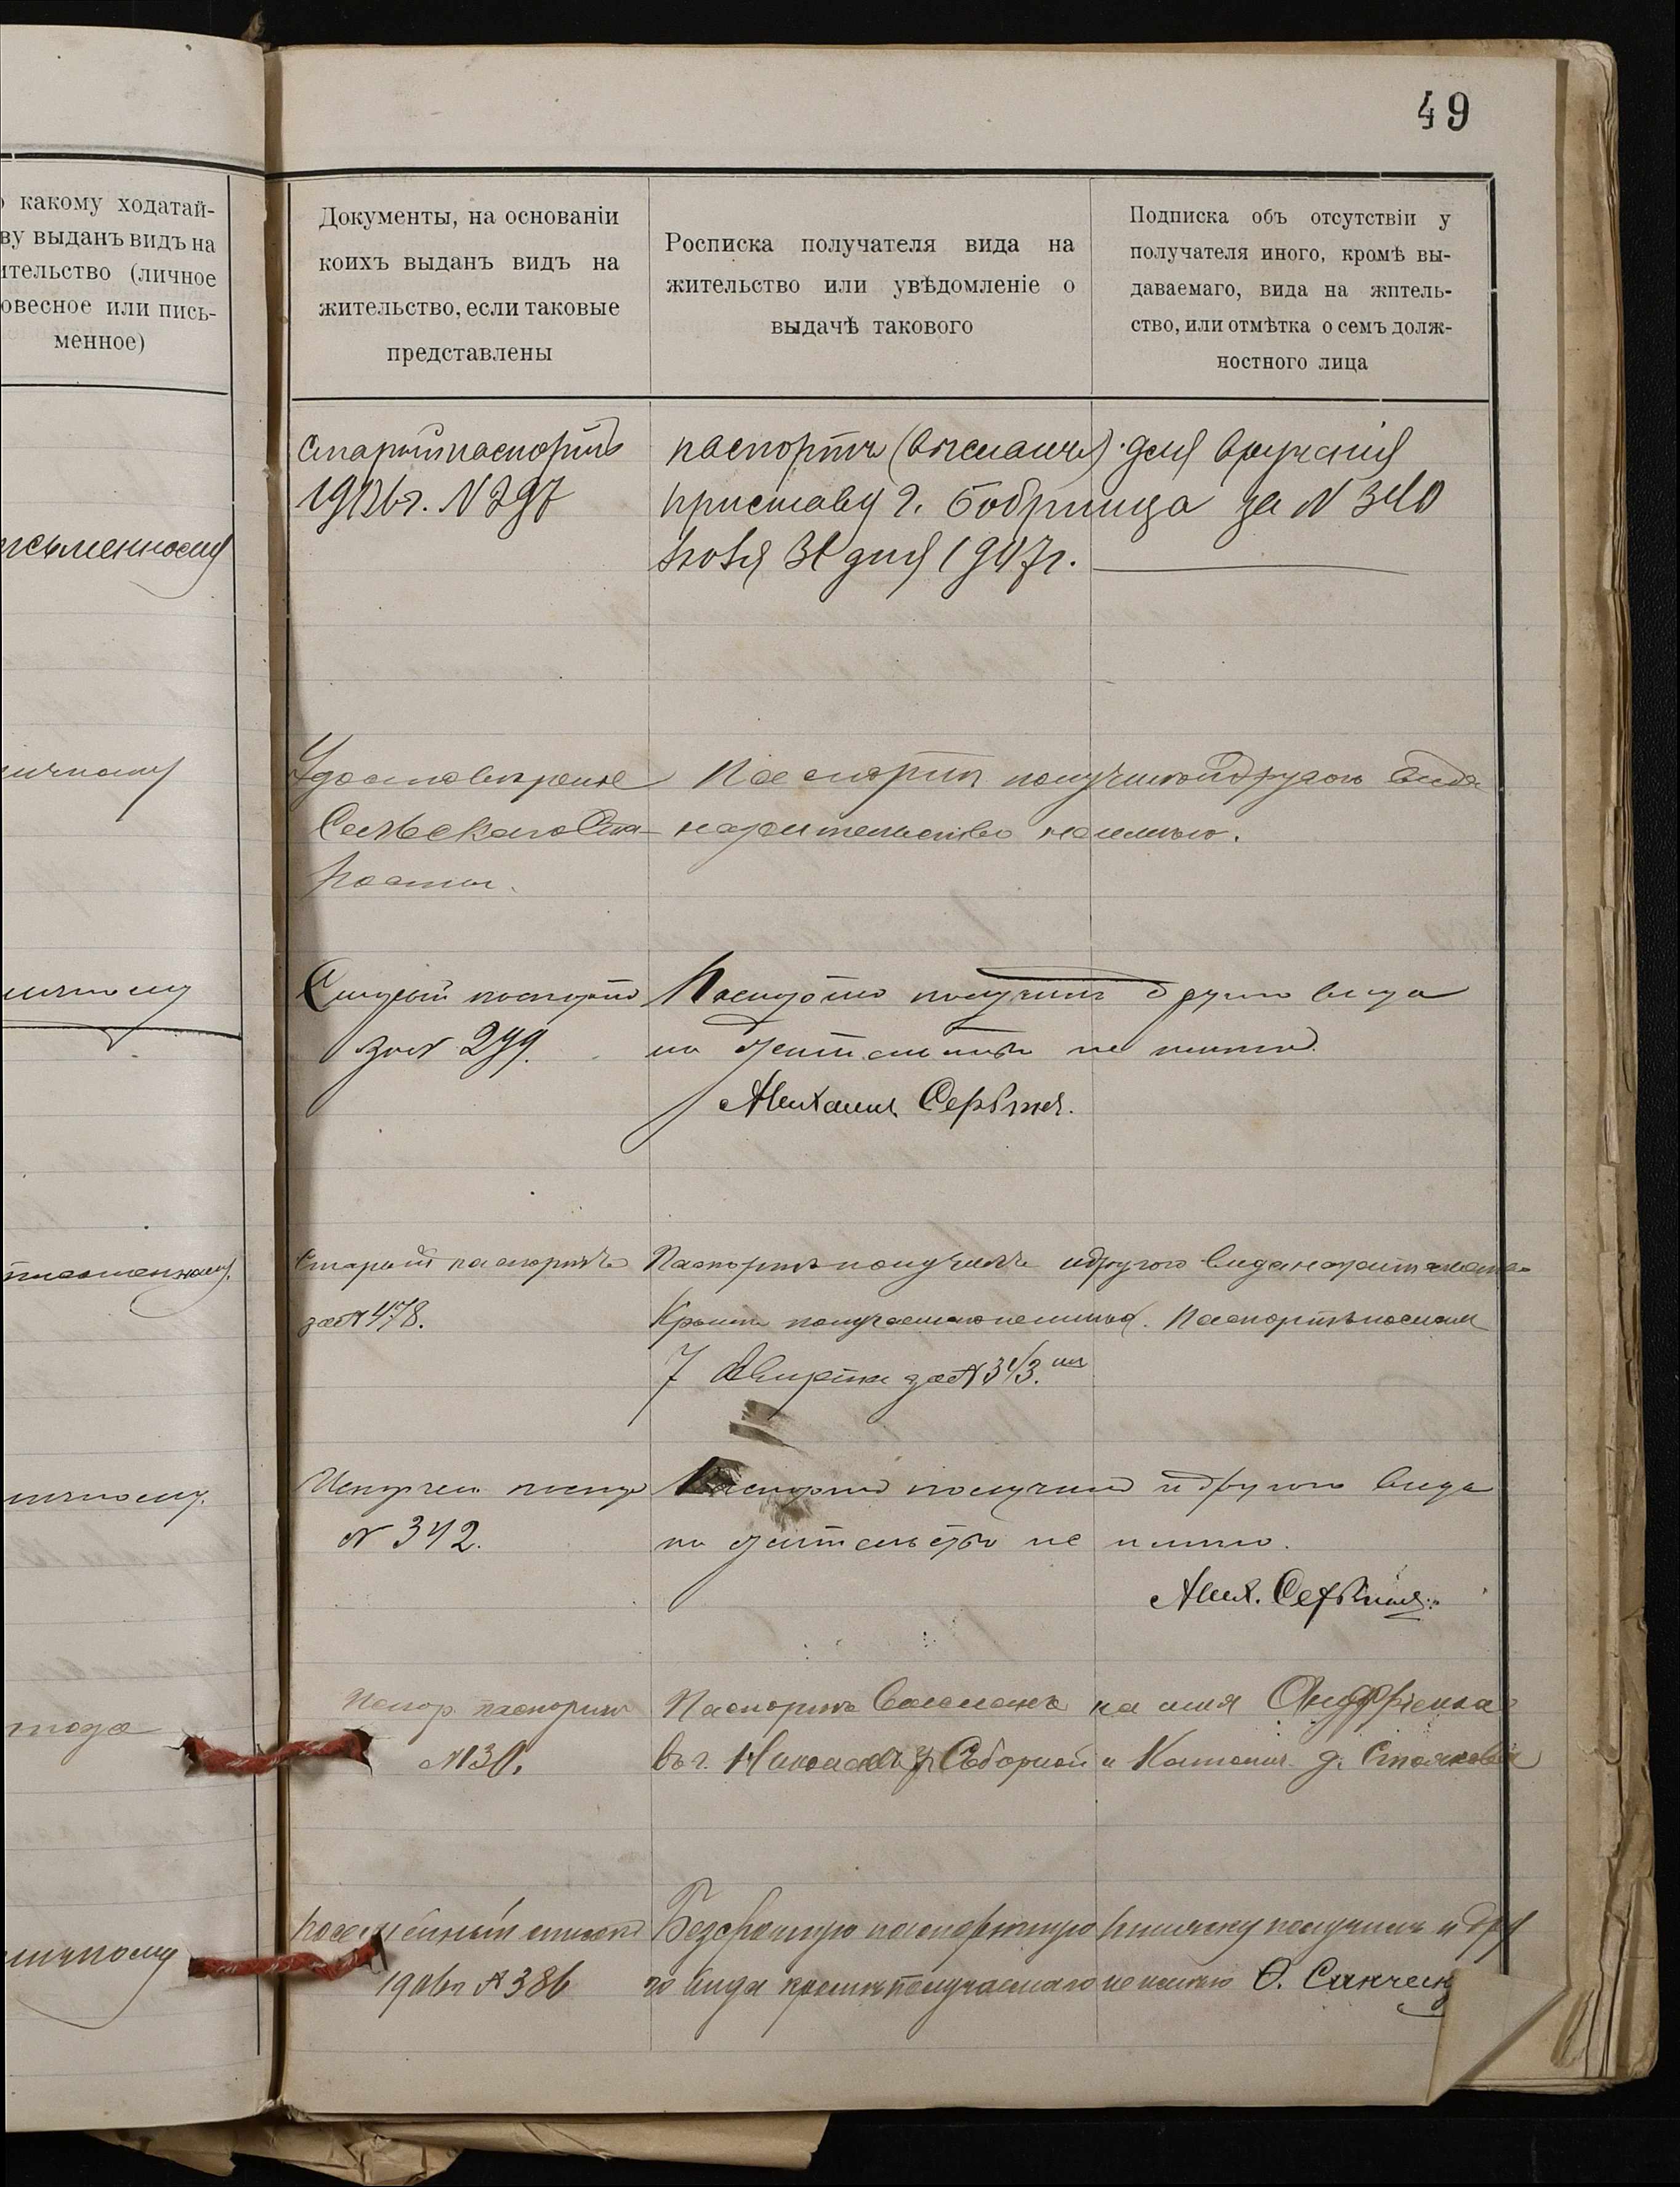 49
какому ходатай-
ву выданъ видъ на
ительство (личное
овесное или пись-
менное)
Документы, на основаніи
коихъ выданъ видъ на
жительство, если таковые
представлены
Росписка получателя вида на
жительство или увѣдомленіе о
выдачѣ такового
Подписка объ отсутствіи у
получателя иного, кромѣ вы-
даваемаго, вида на жптель-
ство, или отмѣтка о семъ долж-
ностного лица
письменному
Старый паспортъ
N 297
паспортъ (высланъ) для врученія
приставу г. Бобринца за N 340
31 дня 1907г.
личному
Удостовѣреніе
Сельскаго Ста-
росты.
Паспортъ получилъ другого вида
на жительство не имѣю.
личному
Старый паспортъ
за N 299.
Паспортъ получилъ другого вида
на жительство не имѣю.
Михаилъ
письменному.
Старый паспортъ
за N 478.
Паспортъ получилъ и другого вида на жительство
Кромѣ получаемаго не имѣю. Паспортъ посланъ
7 Августа за N 343.
личному.
паспор
N 342.
Паспортъ получилъ и другого вида
на жительство не имѣю.
Мих.
паспортъ
N 30.
Паспортъ высланъ на имя
въ г. Николаевъ Соборной и д.
личному
списокъ
1906г N 386
Безсрочную паспортную книжку получилъ и дру
го вида кромѣ получаемаго не имѣю